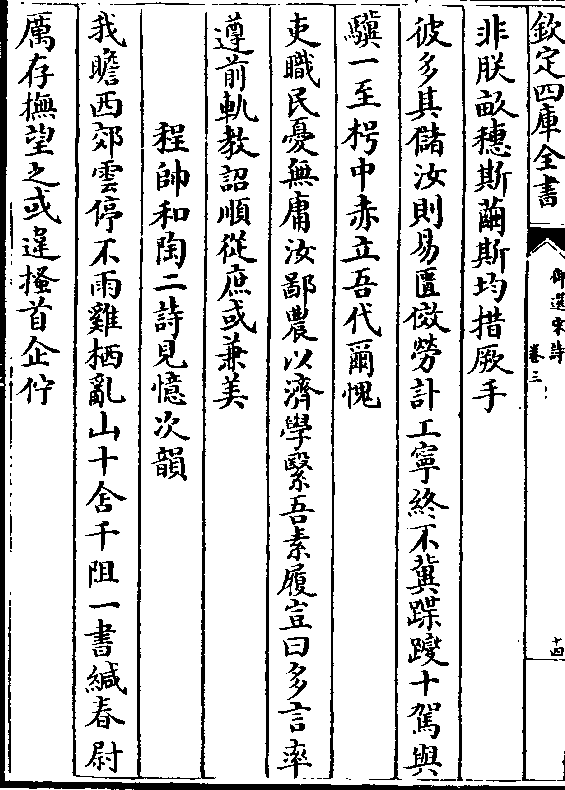 欽定四庫全書
御選宋詩
卷三
十四
非朕畝穗斯繭斯均措厥手
彼多其儲汝則易匱儆勞計工寧終不冀蹀躞十駕與
驥一至枵中赤立吾代爾愧
吏職民憂無庸汝鄙農以濟學繄吾素履豈曰多言率
遵前軌教詔順從庶或兼美
程帥和陶二詩見憶次韻
我瞻西郊雲停不雨雞栖亂山十舍千阻一書緘春尉
厲存撫望之或違搔首企佇